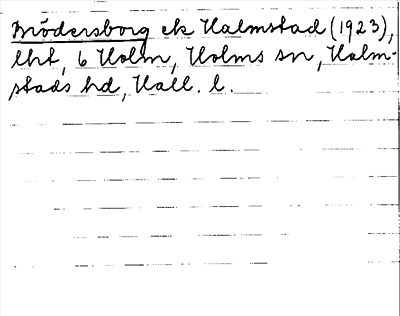 Brödersborg ek Halmstad (1923),
lht, 6 Holm, Holms sn, Halm-
stads hd, Hall. l.